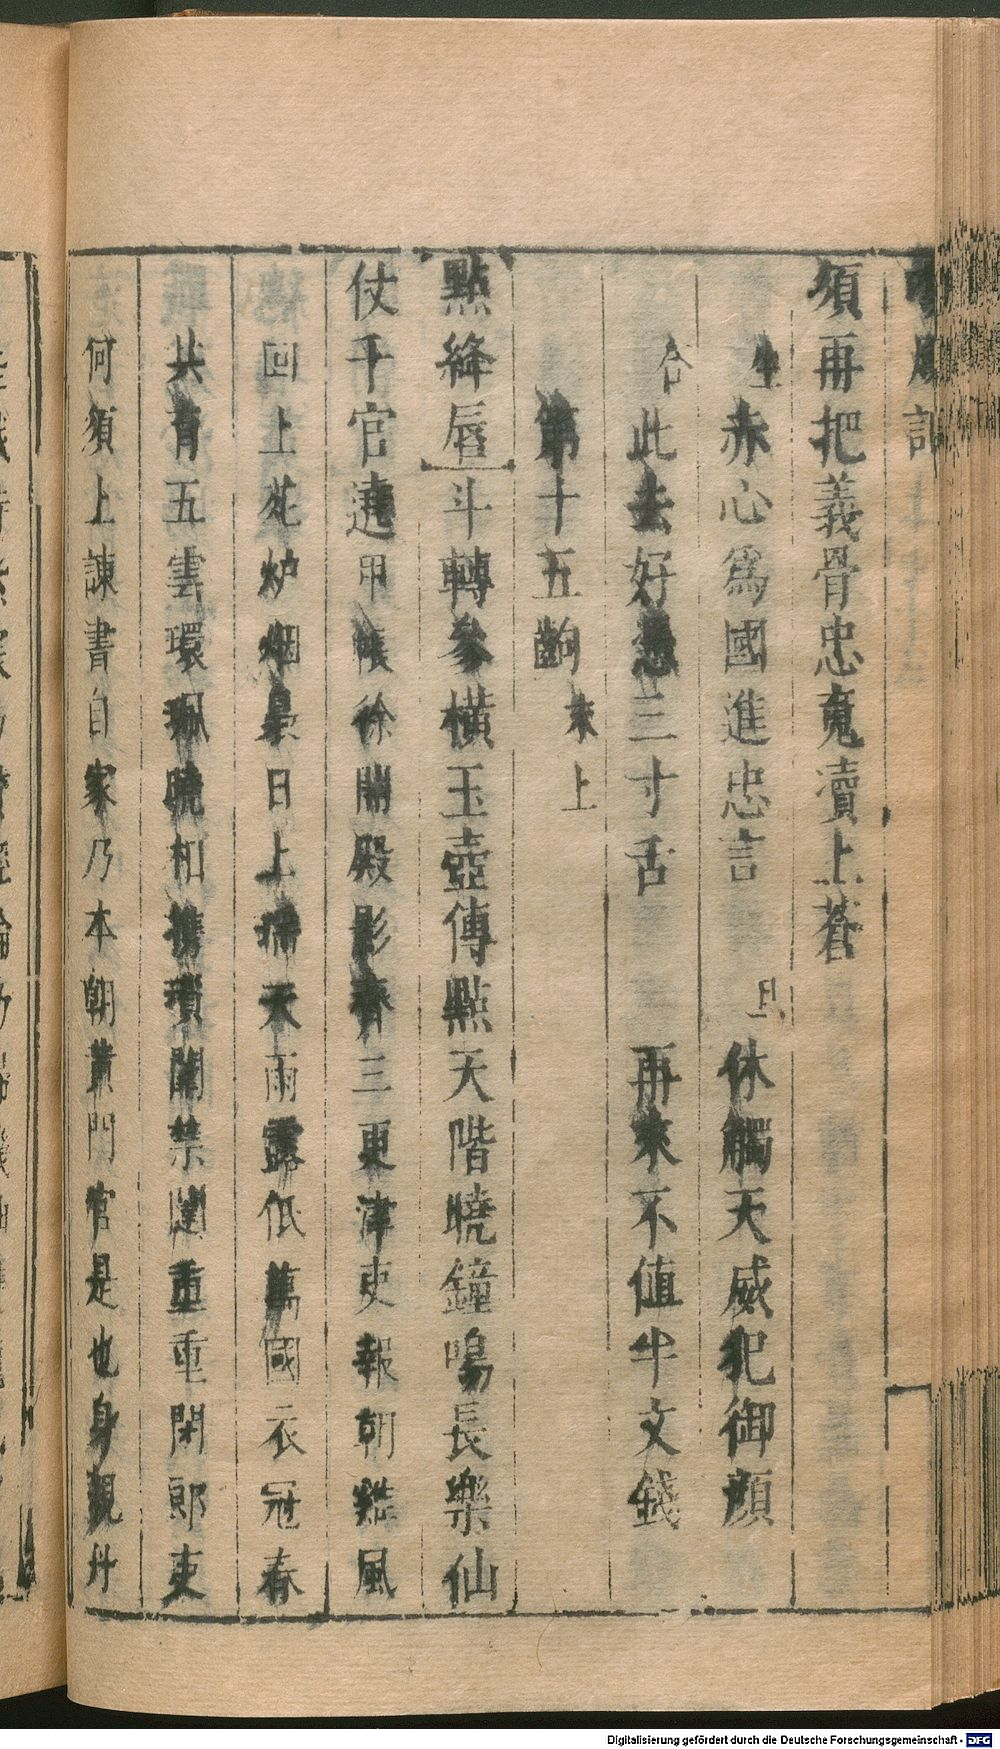 須再把義骨忠魂瀆上蒼
生 赤心爲國進忠言 旦 休觸天威犯御顏
合 此去好憑三寸舌 再來不值半文錢
第十五齣 末上
點絳唇 斗轉參橫玉壺傳點天階曉鐘鳴長樂仙
仗千官遶 甲帳徐開殿影齊三更津吏報朝雞風
回上花炉烟裊日上瑞天雨露低萬國衣冠春
共有五雲環珮曉相攜瑣闈禁闥重重閉郎吏
何須上諫書自家乃本朝黃門官是也身觀丹
Digitalisierung gefördert durch die Deutsche Forschungsgemeinschaft - DFG